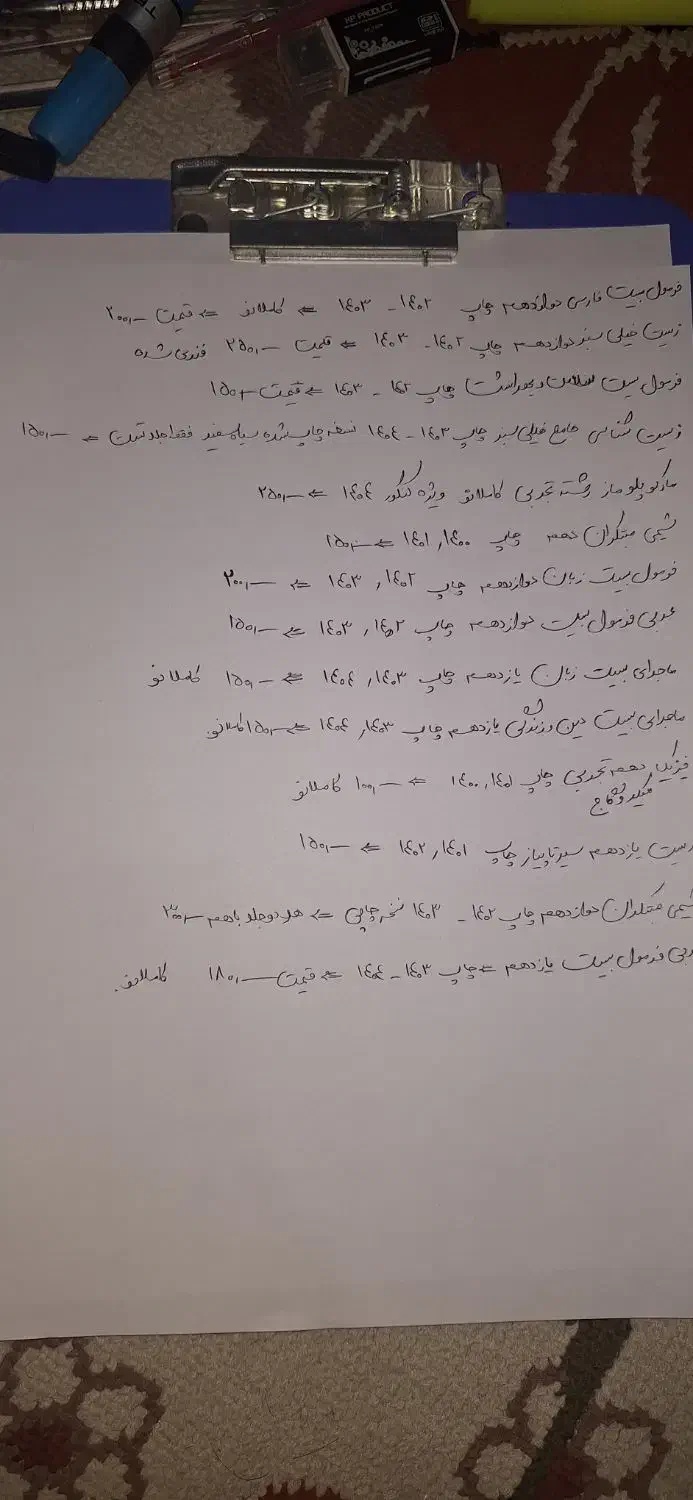 KP PRODUCT
فرمول بیست فارسی دوازدهم چاپ ۱۴۰۲ - ۱۴۰۳ ⇐ کاملا نو ⇐ قیمت ۲۰۰،۰۰۰
زیست خیلی سبز دوازدهم چاپ ۱۴۰۲ - ۱۴۰۳ ⇐ قیمت ۲۵۰،۰۰۰ فنری شده
فرمول بیست سلامت و بهداشت چاپ ۱۴۰۲ - ۱۴۰۳ ⇐ قیمت ۱۵۰،۰۰۰
زیست شناسی جامع خیلی سبز چاپ ۱۴۰۳ - ۱۴۰۴ نسخه چاپ شده سیاه سفید فقط جلد تست ⇐ ۱۵۰،۰۰۰
مارکوپلو ماز رشته تجربی کاملا نو ویژه کنکور ۱۴۰۴ ⇐ ۲۵۰،۰۰۰
شیمی مبتکران دهم چاپ ۱۴۰۰ , ۱۴۰۱ ⇐ ۱۵۰،۰۰۰
فرمول بیست زبان دوازدهم چاپ ۱۴۰۲ , ۱۴۰۳ ⇐ ۲۰۰،۰۰۰
عربی فرمول بیست دوازدهم چاپ ۱۴۰۲ , ۱۴۰۳ ⇐ ۱۵۰،۰۰۰
ماجرای بیست زبان یازدهم چاپ ۱۴۰۳ , ۱۴۰۴ ⇐ ۱۵۰،۰۰۰ کاملا نو
ماجرای بیست دین و زندگی یازدهم چاپ ۱۴۰۳ , ۱۴۰۴ ⇐ ۱۵۰،۰۰۰ کاملا نو
فیزیک دهم تجربی چاپ ۱۴۰۱ , ۱۴۰۰ ⇐ ۱۰۰،۰۰۰ کاملا نو
میکرو گاج
زیست یازدهم سیر تا پیاز چاپ ۱۴۰۱ , ۱۴۰۲ ⇐ ۱۵۰،۰۰۰
شیمی مبتکران دوازدهم چاپ ۱۴۰۲ - ۱۴۰۳ نسخه چاپی ⇐ هر دو جلد باهم ۳۰۰،۰۰۰
عربی فرمول بیست یازدهم ⇐ چاپ ۱۴۰۳ - ۱۴۰۴ ⇐ قیمت ۱۸۰،۰۰۰ کاملا نو.